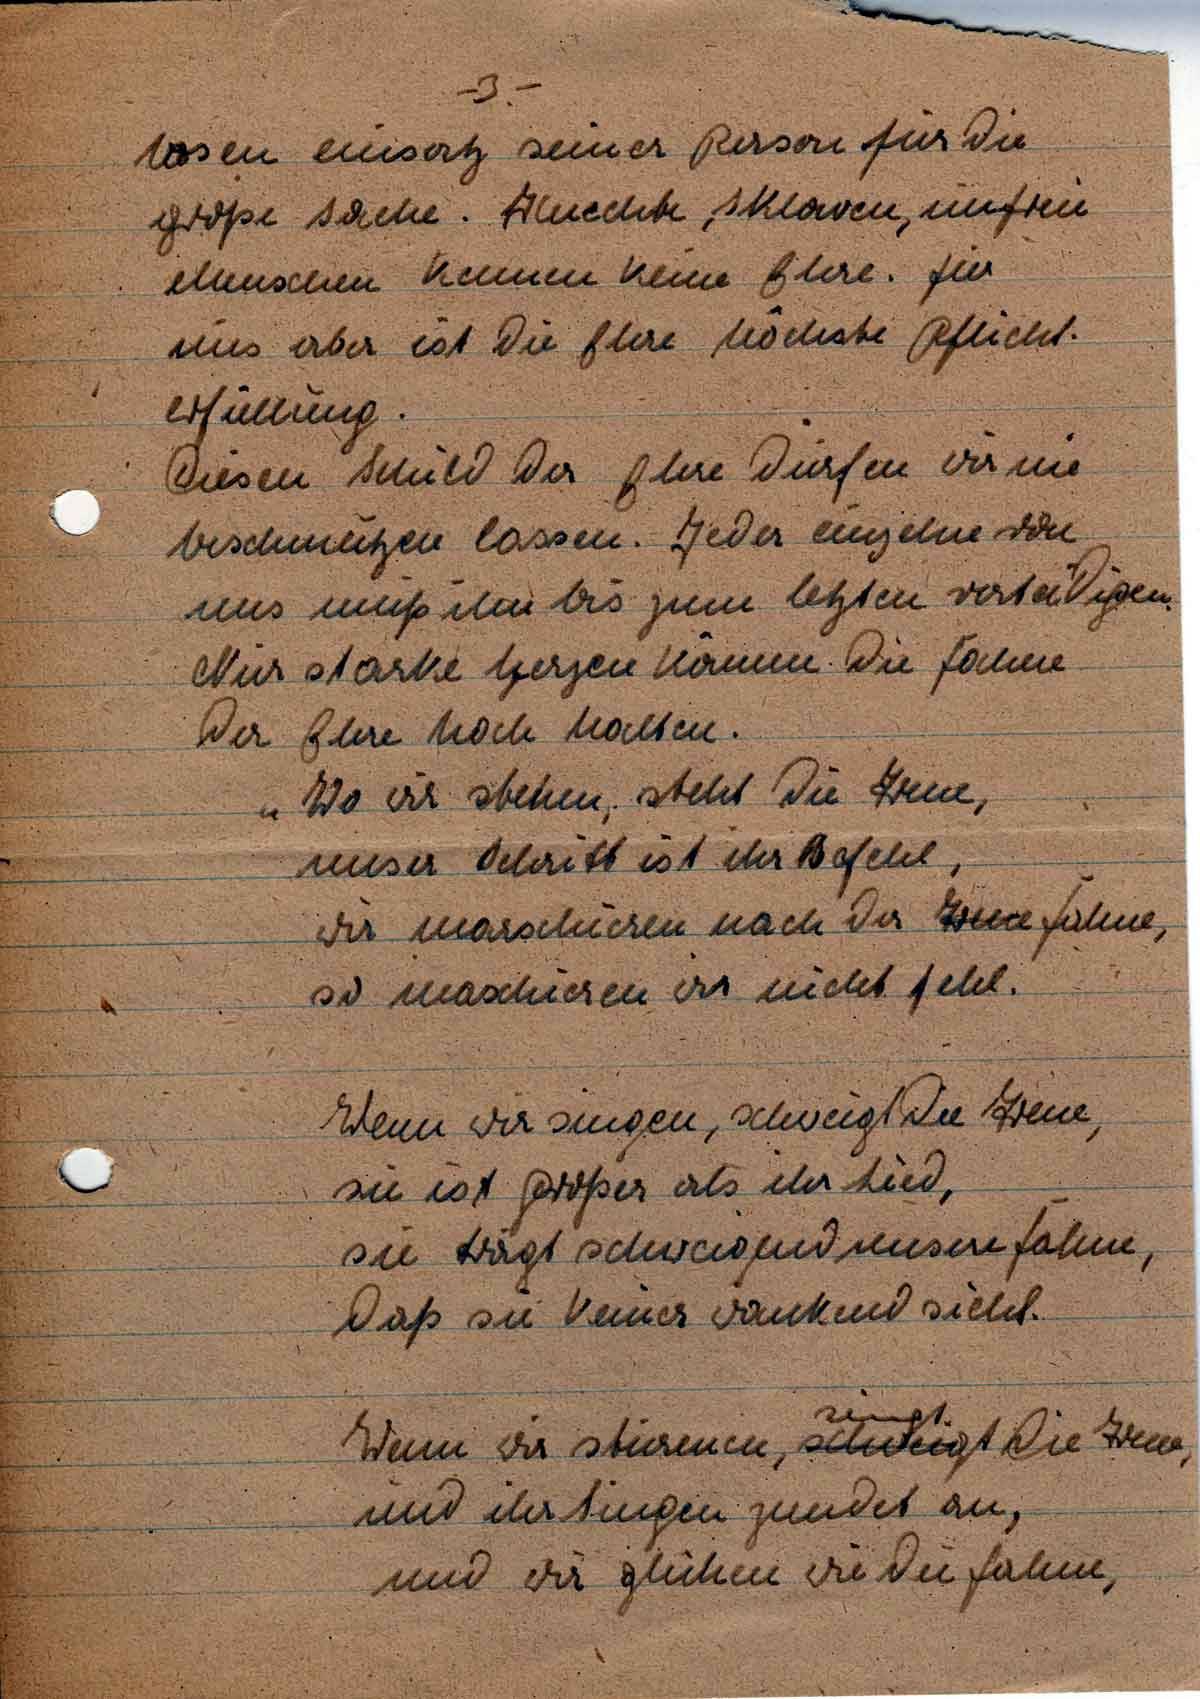 -3.-
losen einsatz seiner Person für die
große Sache. Knechte, Sklaven, unfreie
Menschen kennen keine Ehre. Für
uns aber ist die Ehre höchste Pflicht-
erfüllung.
Diesen Schild der Ehre dürfen wir nie
beschmutzen lassen. Jeder einzelne von
uns muß ihn bis zum letzten verteidigen.
Nur starke Herzen können die Fahne
der Ehre hoch halten.
„Wo wir stehen, steht die Treue,
unser Schritt ist ihr Befehl,
wir marschieren nach der Treue Fahne,
so maschieren wir nicht fehl.
Wenn wir singen, schweigt die Treue,
sie ist größer als ihr Lied,
sie trägt schweigend unsere Fahne,
daß sie keiner wankend sieht.
Wenn wir stürmen, singt
schweigt die Treue,
und ihr Singen zündet an,
und wir glühen wie die Fahne,